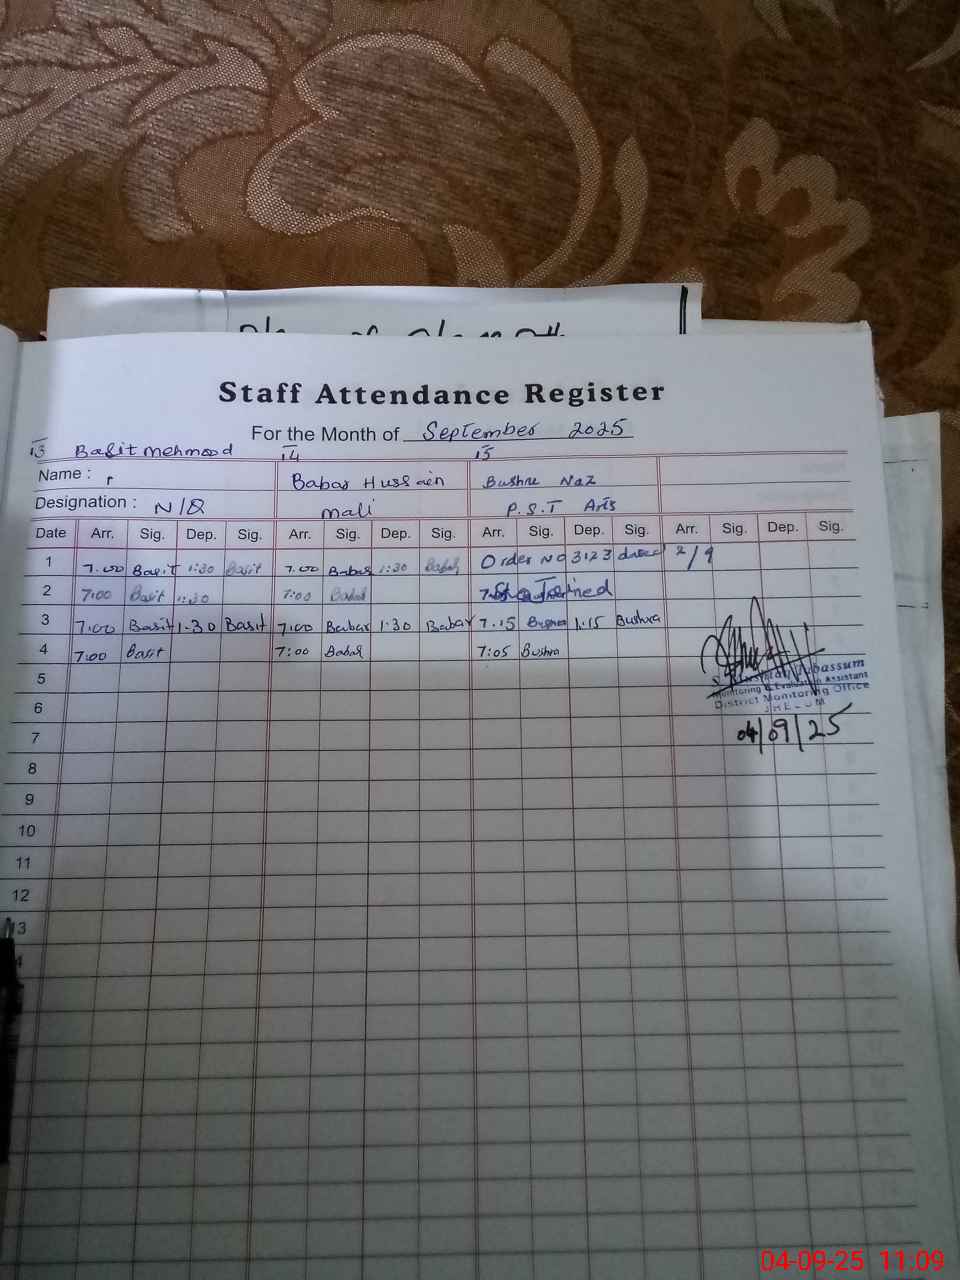 Staff Attendance Register
For the Month of September 2025
13 Basit mehmood 14 15
Name : Babar Hussain Bushra Naz
Designation : N/Q mali P.S.T Arts
Date Arr. Sig. Dep. Sig. Arr. Sig. Dep. Sig. Arr. Sig. Dep. Sig. Arr. Sig. Dep. Sig.
1 7.00 Basit 1:30 Basit 7.00 Babar 1:30 Babar Order No 3123 dated 2/9
2 7:00 Basit 1:30 7:00 Babar
3 7:00 Basit 1.30 Basit 7:00 Babar 1:30 Babar 7.15 Bushra 1:15 Bushra
4 7:00 Basit 7:00 Babar 7:05 Bushra
5
6
7
8
9
10
11
12
13
Tabassum
Monitoring & Evaluation Assistant
District Monitoring Office
JHELUM
04/09/25
04-09-25 11:09